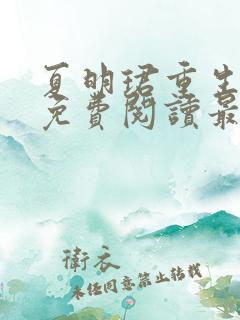 夏明珺重生
免費閱讀最
衛衣
未任同意禁止轉載